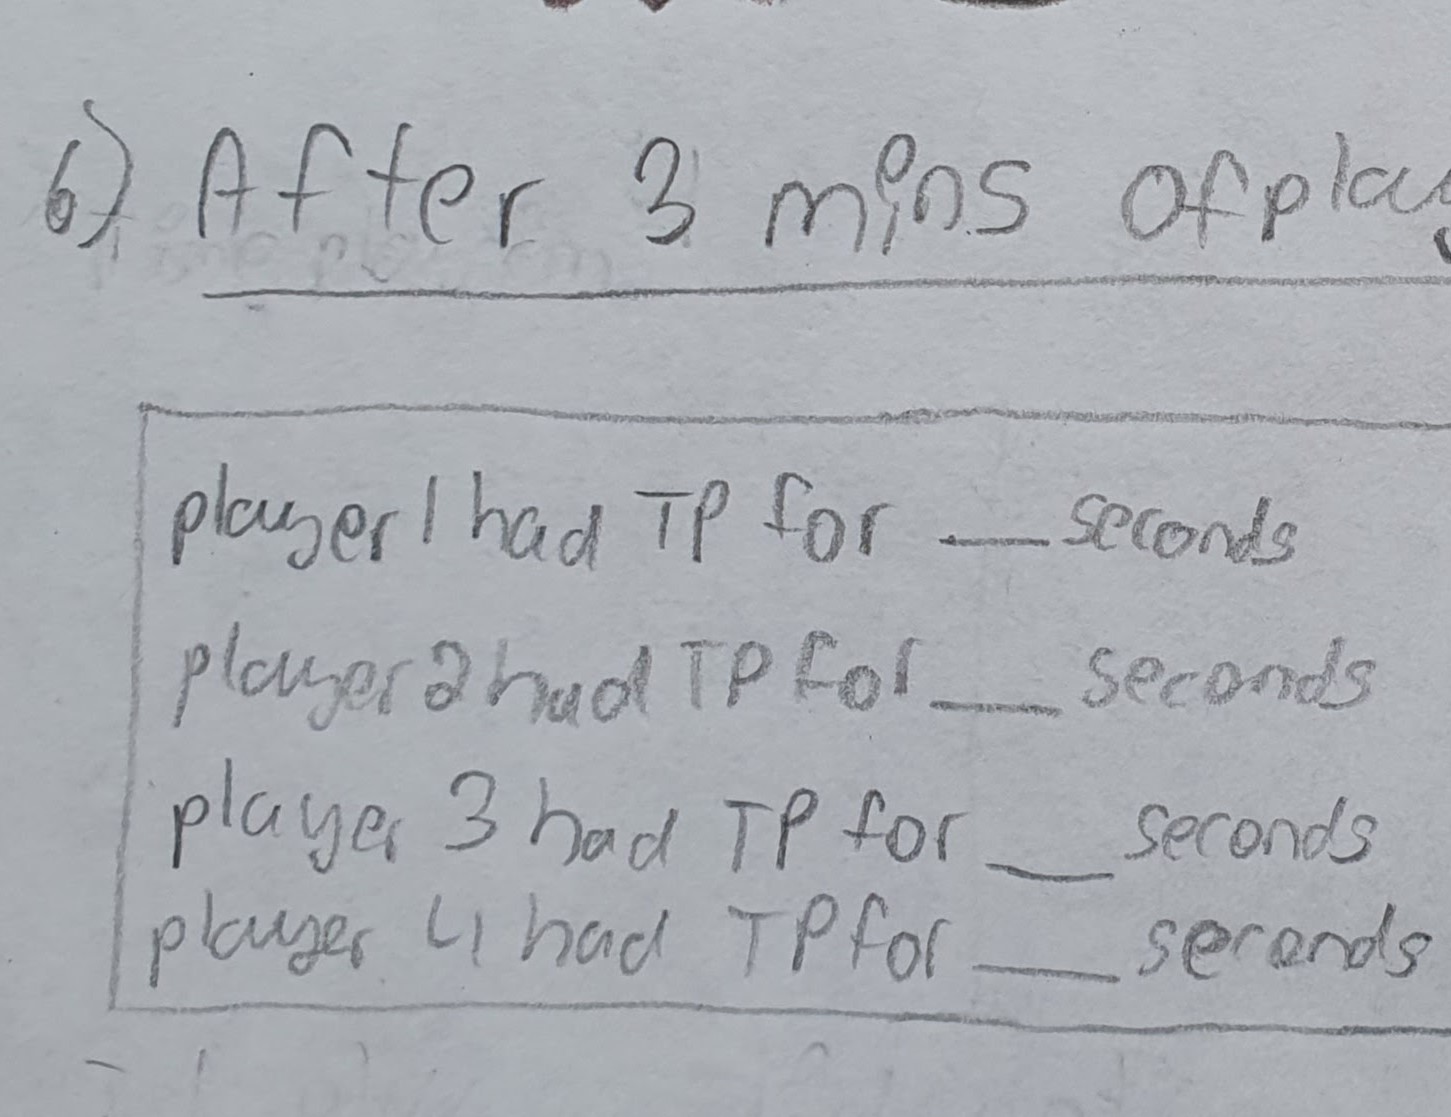 6) After 3 mins of play
player 1 had TP for __ seconds
player 2 had TP for __ seconds
player 3 had TP for __ seconds
player 4 had TP for __ seconds